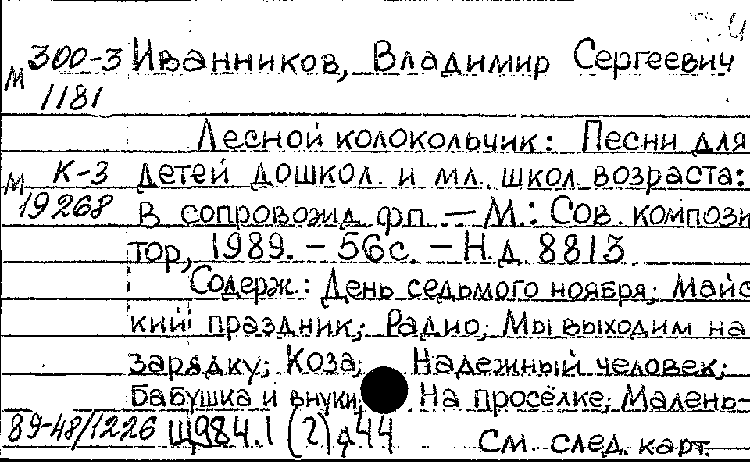 М 300-3 Иванников, Владимир Сергеевич
1181
Лесной колокольчик: Песни для
М К-3 детей дошкол. и мл. школ. возраста:
19268 В сопровожд. фп. — М.: Сов. компози
тор, 1989. – 56с. – Н.д. 8813.
Содерж.: День седьмого ноября; Майс
кий праздник; Радио; Мы выходим на
зарядку; Коза; Надежный человек;
Бабушка и внуки; На просёлке; Малень-
89-48/1226 Щ984.1 (2)я44 См. след. карт.